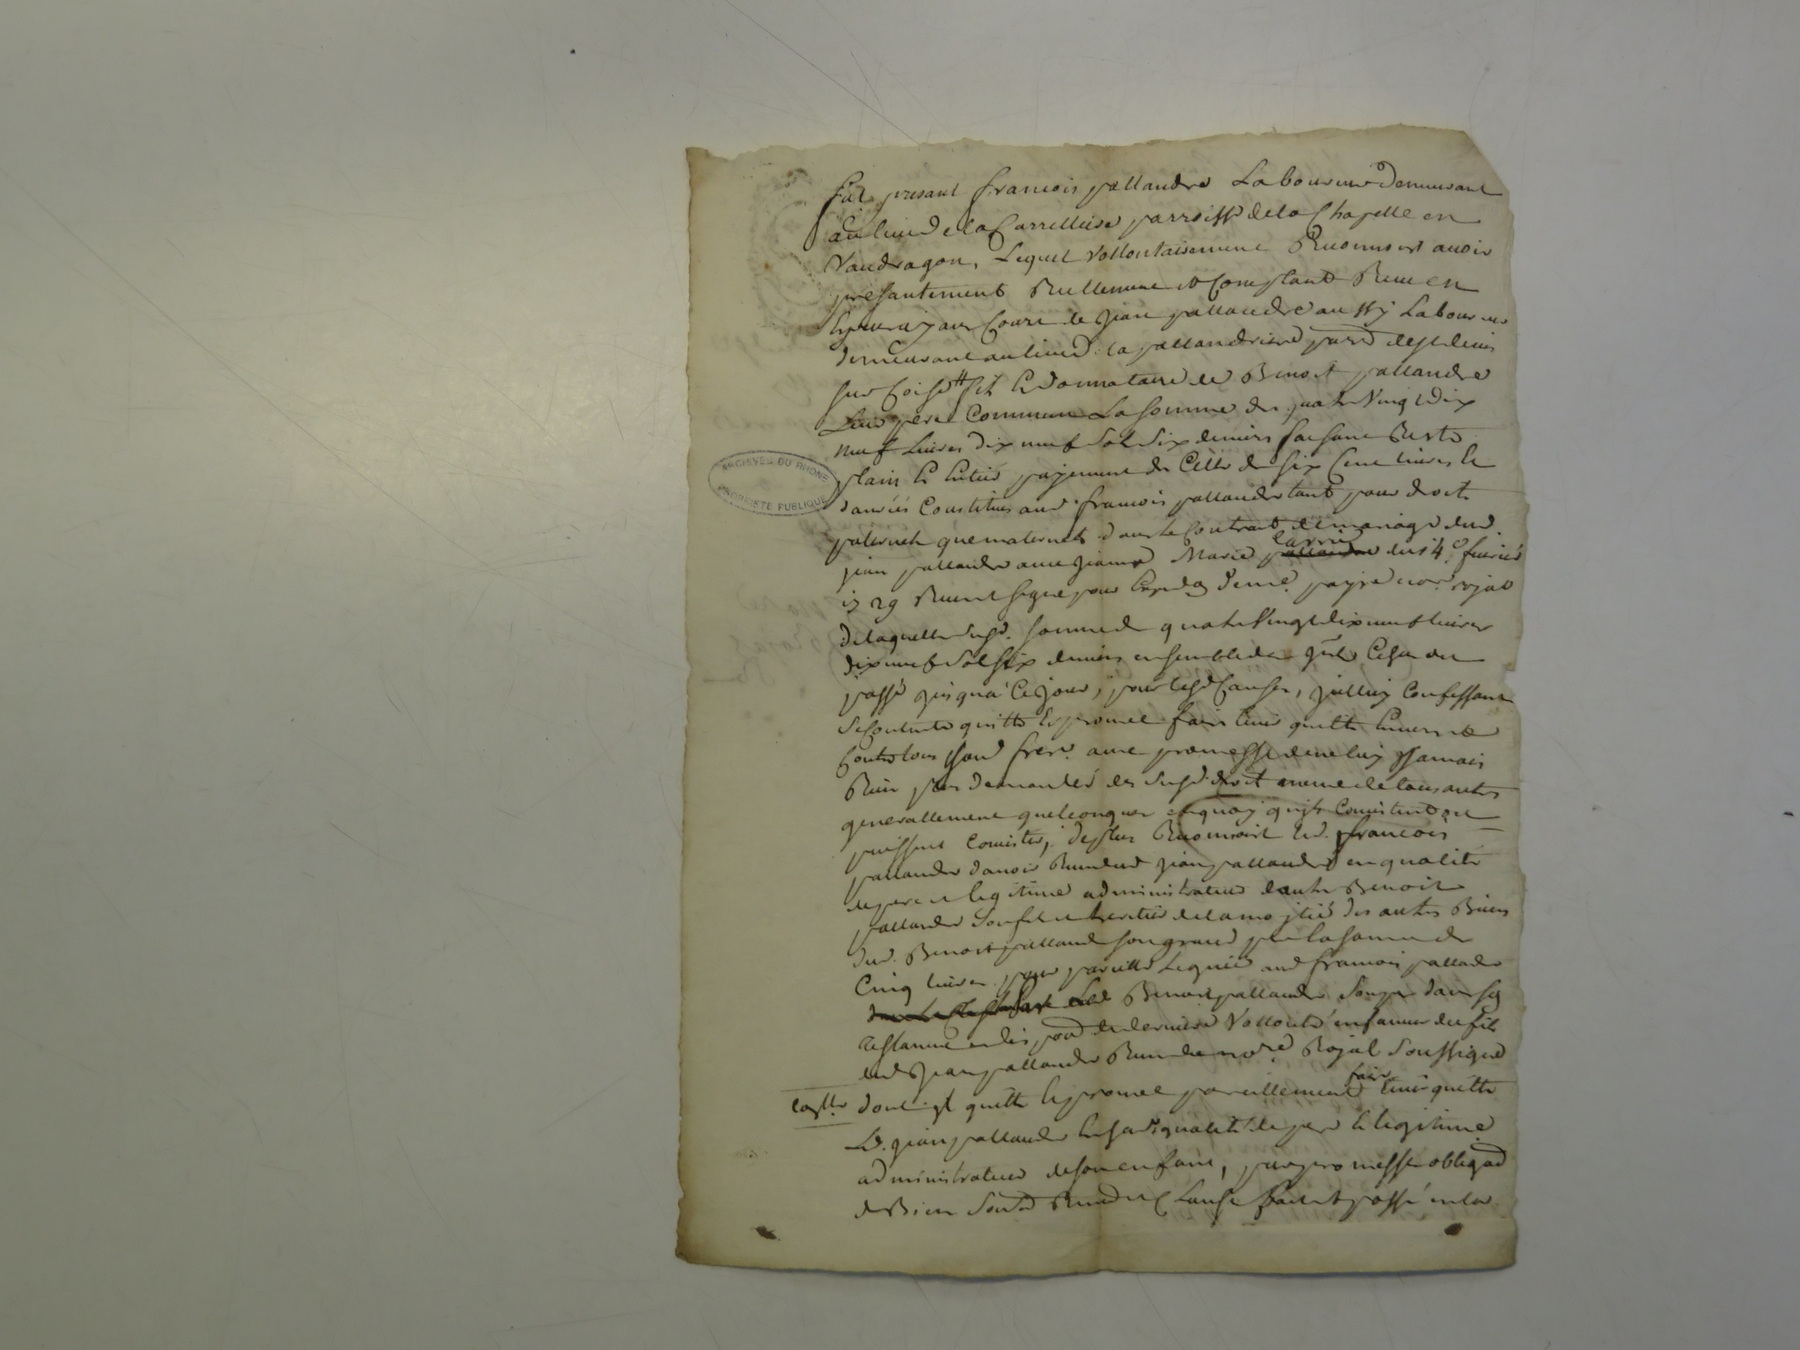 Fut presant francois pallandre Laboureur demeurant
au lieu de la Carrelliere parroisse de la Chapelle en
Vaudragon, Lequel vollontairement Reconnoist avoir
presantement Reellement et Comptant Receu en
jean pallandre aussy Laboureur
demeurant au lieu de la pallandriere parr. de st denis
sur Coise fils et donnataire de Benoit pallandre
Leur pere Commun La somme de quatre Vingt dix
neuf Livres dix neuf sol six deniers faisant Reste
plain et entier payement de Celle de six Cent livres
Constitues aud. francois pallandre tant pour droits
paternels que maternels dans le Contrat de mariage dud.
jean pallandre avec jeanne Marie du 14e fevrier
1729 Receu et signé par no.re royal
de laquelle susd. somme de quatre Vingt dix neuf livres
dix neuf sol six deniers ensemble de
passé jusqua Ce jour, pour lesd. Causes, jcelluy Confessant
se Contente quitte et promet faire tenir quitte envers et
Contre tous sond. frere avec promesse de ne luy jamais
Rien plus demander des susd. droit meme de tous autres
generallement quelconques en quoy qu'ils Consistent et
puissent Consister, de plus Reconnoit led. francois
pallandre d'avoir Receu dud. jean pallandre en qualité
de pere et legitime administrateur d'autre Benoit
pallandre son fils et heritier de la moytié des autres Biens
dud. Benoit palland son grand pere la somme de
Cinq livres pour pareille Leguée aud. francois pallandre
Benoit pallandre son pere dans son
testament et disposon de derniere Vollonté en faveur du fils
dud. jean pallandre Receu de no.re Royal soussigné
dont jl quitte et promet pareillement faire tenir quitte
Led. jean pallandre en sad. qualité de pere et legitime
administrateur de son enfant, par promesse obligaon
de Biens Renon et Clause fait et passé en la
ARCHIVES DU RHONE
PROPRIÉTÉ PUBLIQUE